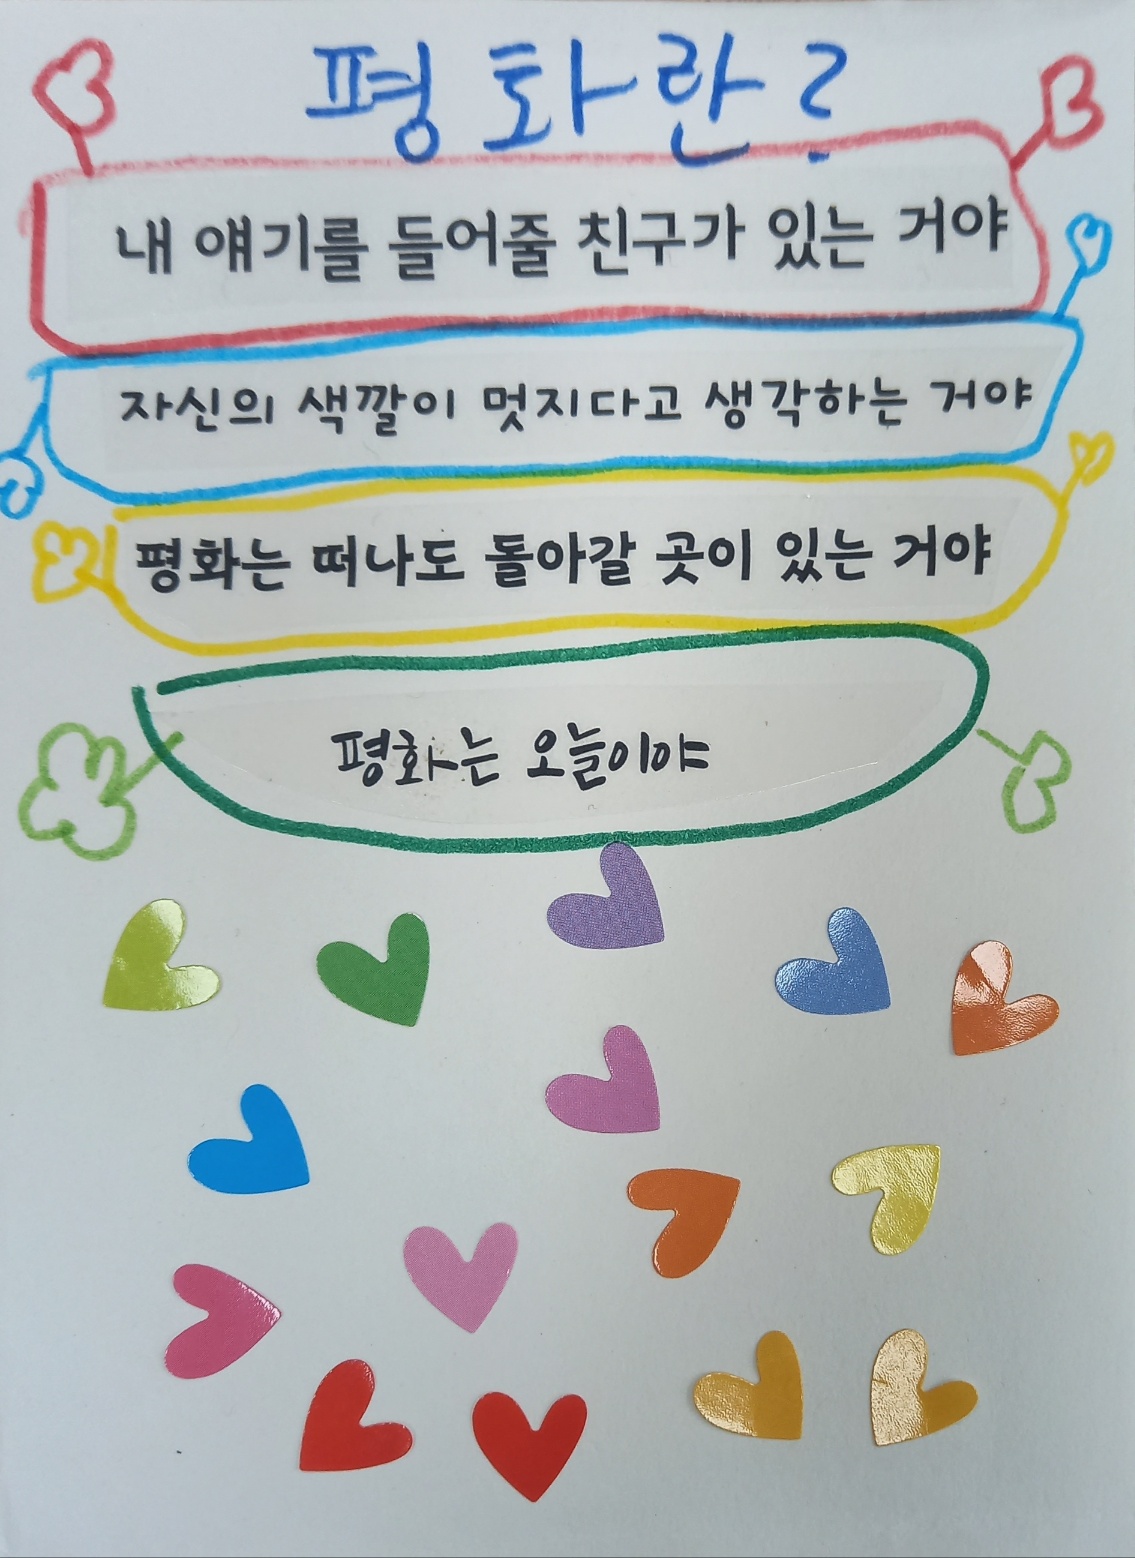 평화란?
내 얘기를 들어줄 친구가 있는 거야
자신의 색깔이 멋지다고 생각하는 거야
평화는 떠나도 돌아갈 곳이 있는 거야
평화는 오늘이야